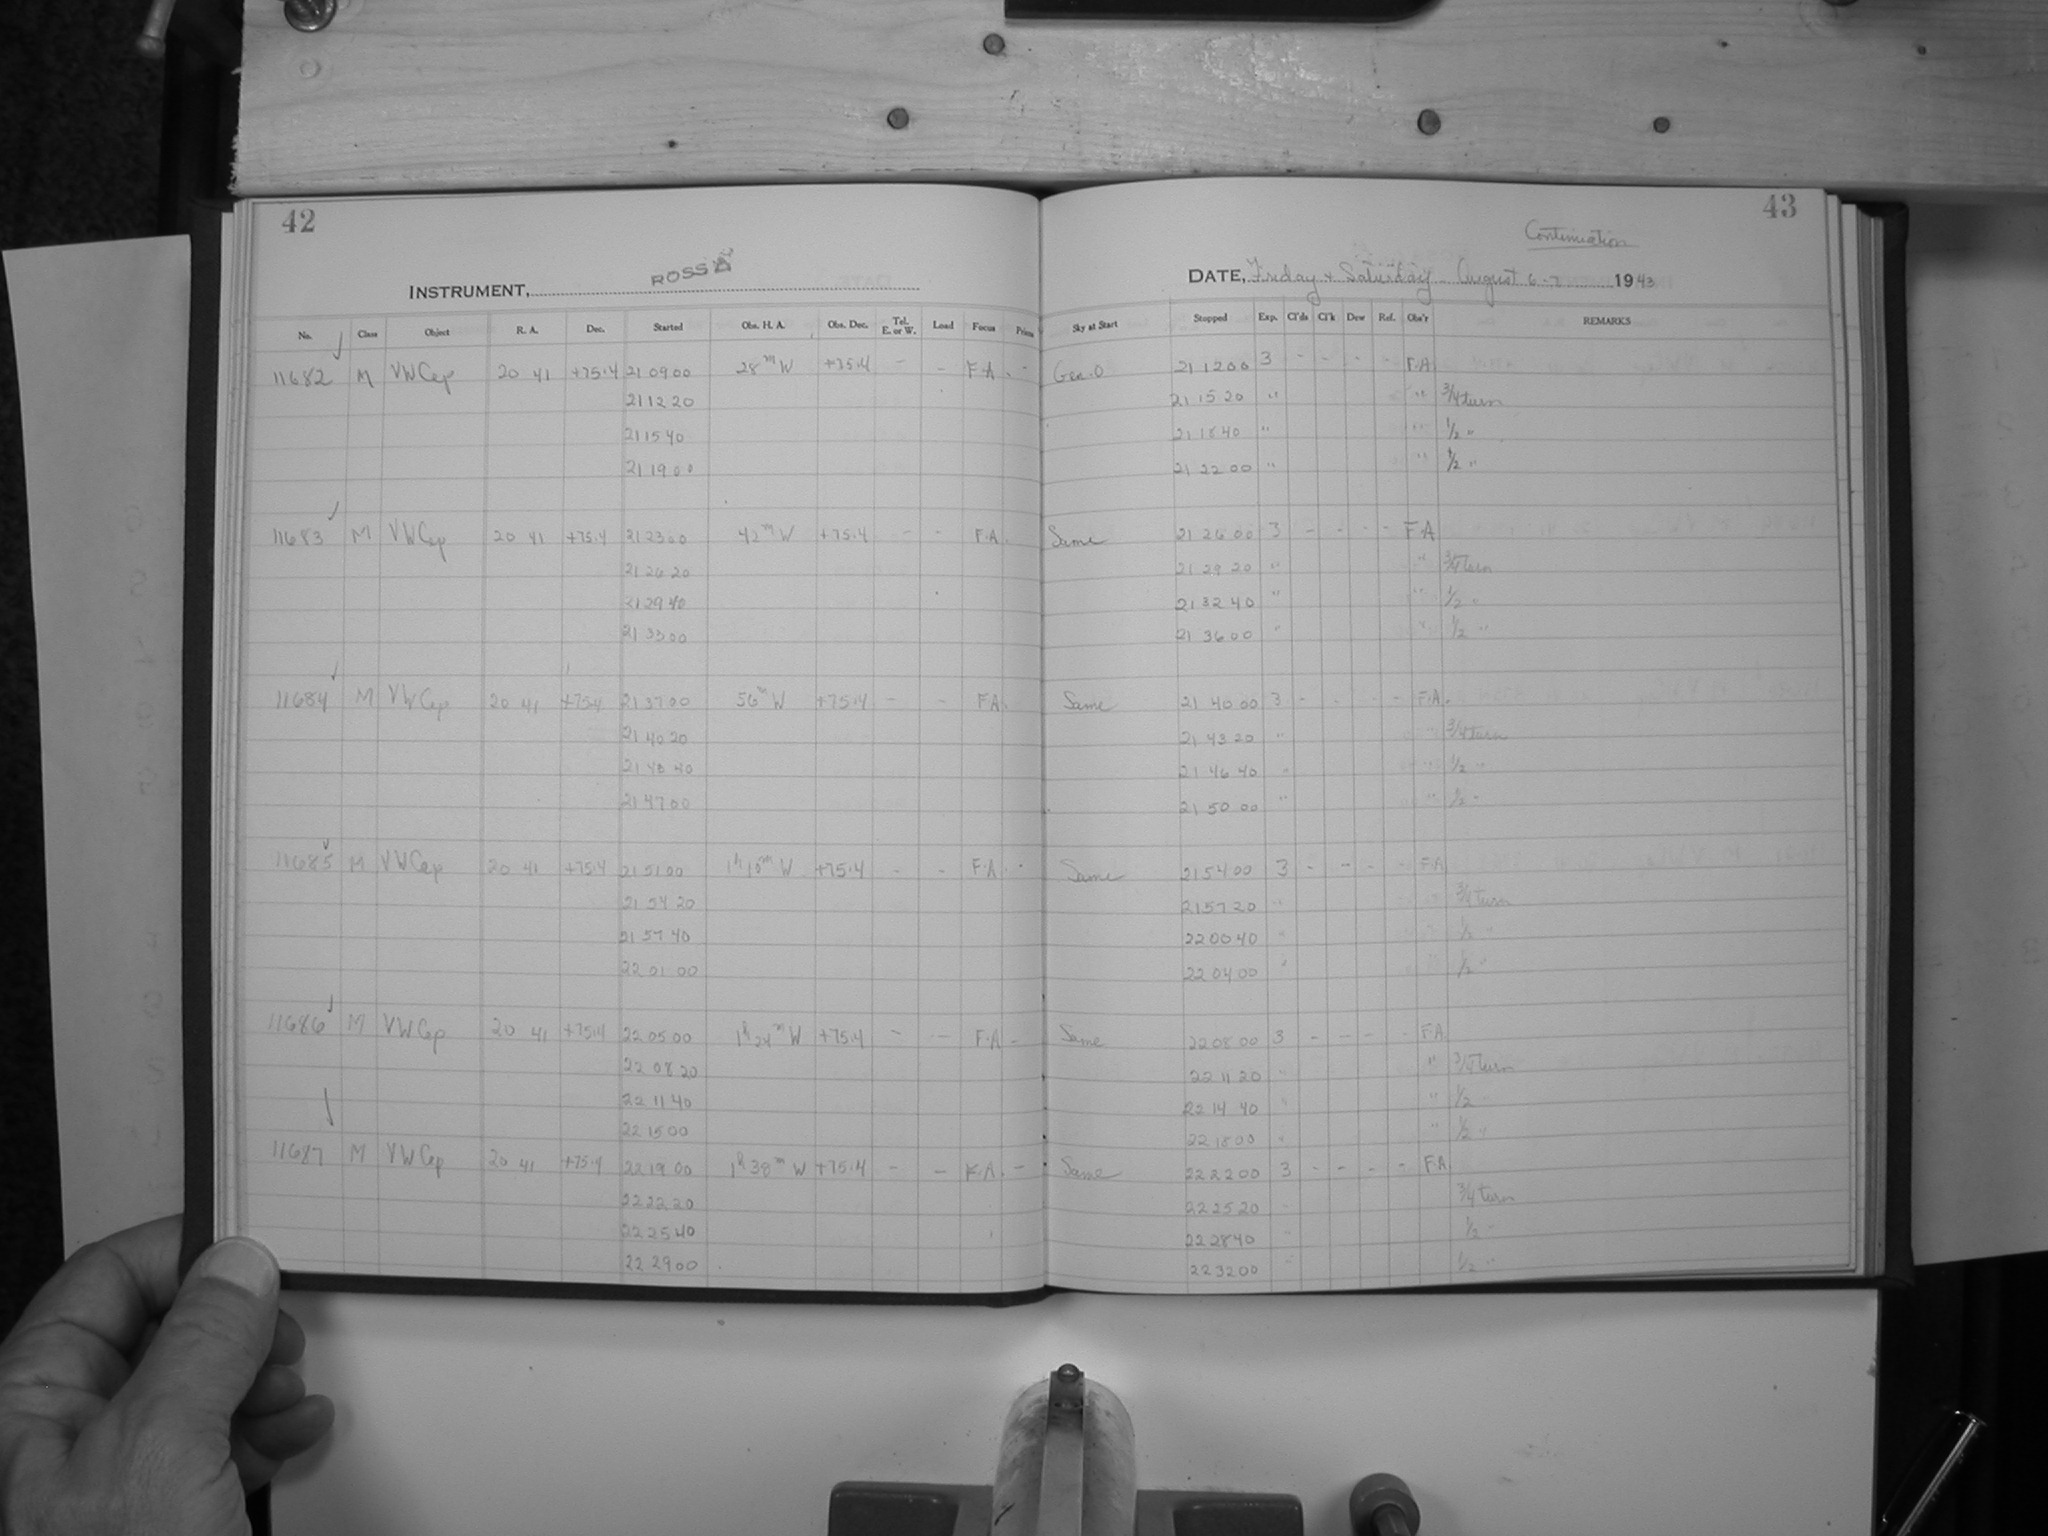 42
43
Continuation
INSTRUMENT, ROSS
DATE, Friday + Saturday August 6-7 1943
No. Class Object R. A. Dec. Started Obs. H. A. Obs. Dec. Tel. E. or W. Load Focus Prism Sky at Start Stopped Exp. Cl'ds Cl'k Dew Ref. Obs'r REMARKS
11682 M VW Cep 20 41 +75.4 21 09 00 28m W +75.4 - - F.A. - Gen. O 21 12 00 3 - - - - F.A
21 12 20 21 15 20 " " 3/4 turn
21 15 40 21 18 40 " " 1/2 "
21 19 00 21 22 00 " " 1/2 "
11683 M VW Cep 20 41 +75.4 21 23 00 42m W +75.4 - - F.A. Same 21 26 00 3 - - - - F.A
21 26 20 21 29 20 " " 3/4 turn
21 29 40 21 32 40 " " 1/2 "
21 33 00 21 36 00 " " 1/2 "
11684 M VW Cep 20 41 +75.4 21 37 00 56m W +75.4 - - F.A. Same 21 40 00 3 - - - - F.A.
21 40 20 21 43 20 " " 3/4 turn
21 43 40 21 46 40 " " 1/2 "
21 47 00 21 50 00 " " 1/2 "
11685 M VW Cep 20 41 +75.4 21 51 00 1h 10m W +75.4 - - F.A. - Same 21 54 00 3 - - - - F.A
21 54 20 21 57 20 " " 3/4 turn
21 57 40 22 00 40 " " 1/2 "
22 01 00 22 04 00 " " 1/2 "
11686 M VW Cep 20 41 +75.4 22 05 00 1h 24m W +75.4 - - F.A. - Same 22 08 00 3 - - - - F.A
22 08 20 22 11 20 " " 3/4 turn
22 11 40 22 14 40 " " 1/2 "
22 15 00 22 18 00 " " 1/2 "
11687 M VW Cep 20 41 +75.4 22 19 00 1h 38m W +75.4 - - F.A. - Same 22 22 00 3 - - - - F.A
22 22 20 22 25 20 " 3/4 turn
22 25 40 22 28 40 " 1/2 "
22 29 00 22 32 00 " 1/2 "